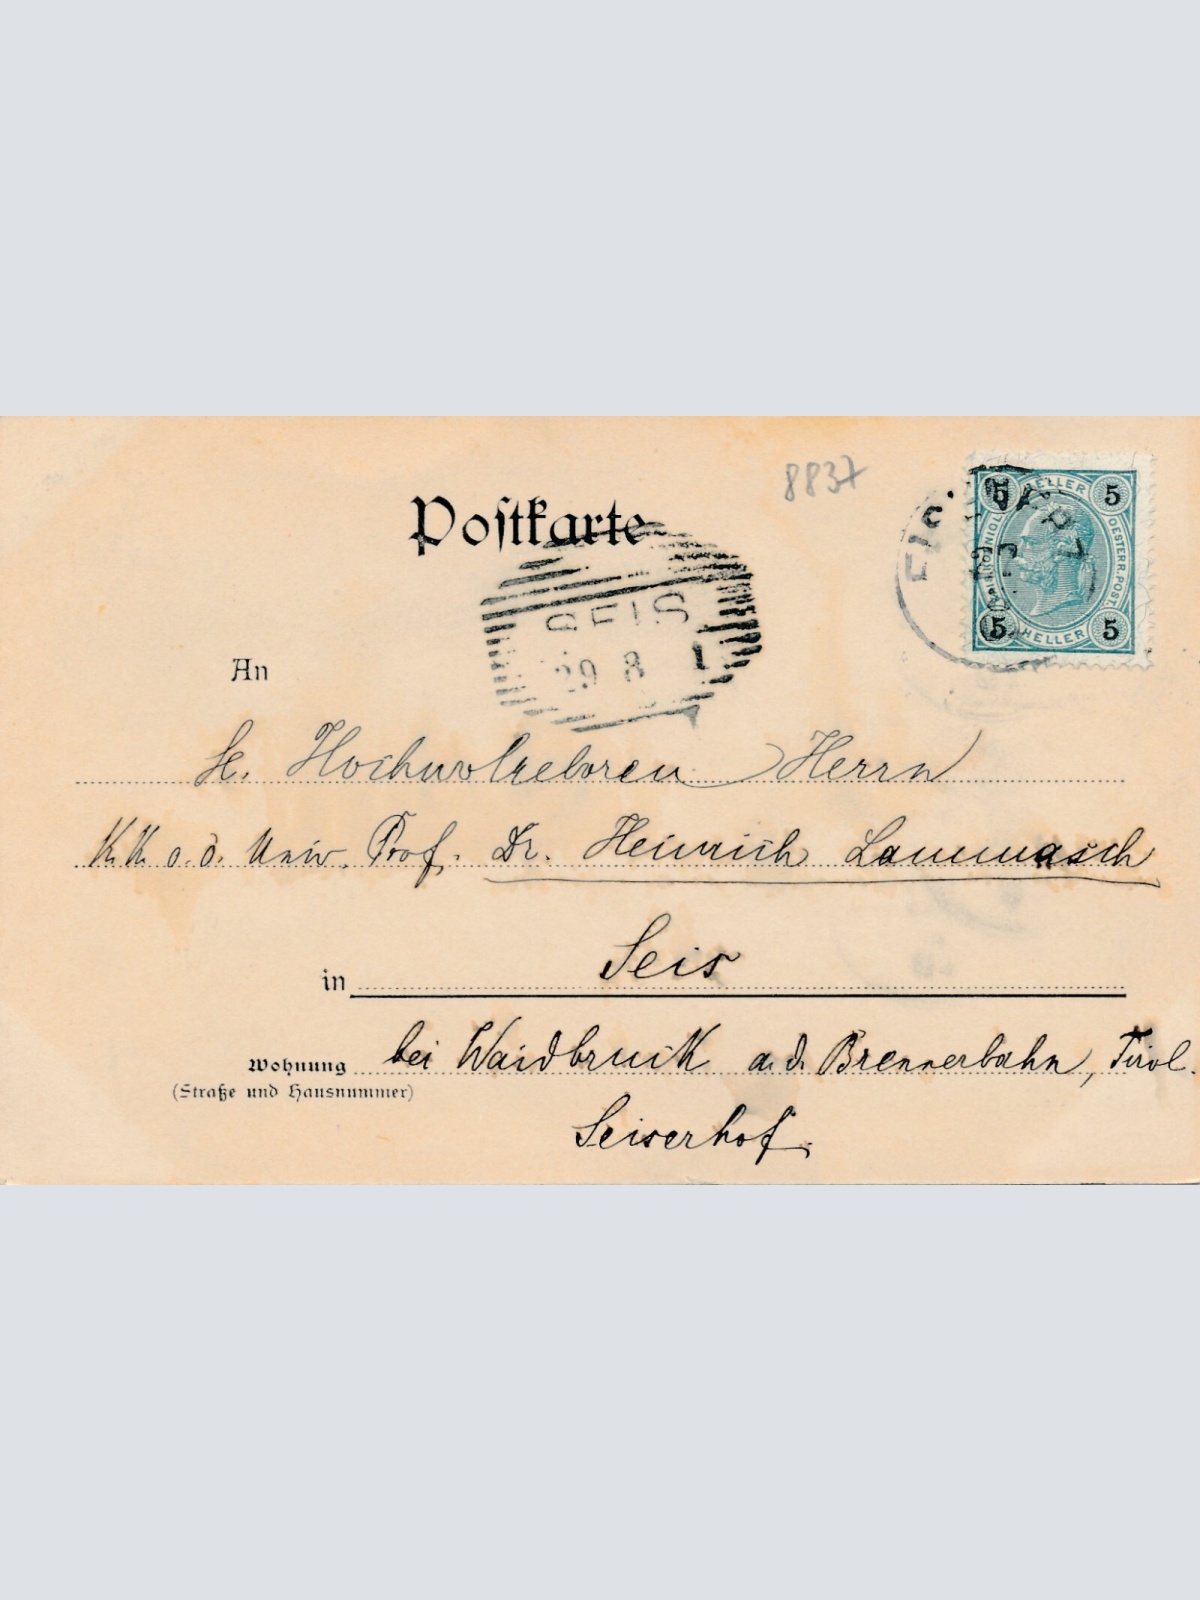 8837
Postkarte
5 HELLER 5
KAIS. KÖNIGL. OESTERR. POST.
5 HELLER 5
SEIS
29 8 1
An
Sr. Hochwohlgeboren Herrn
K. K. o. ö. Univ. Prof. Dr. Heinrich Lammasch
in Seis
Wohnung bei Waidbruck a. d. Brennerbahn, Tirol.
(Straße und Hausnummer)
Seiserhof.